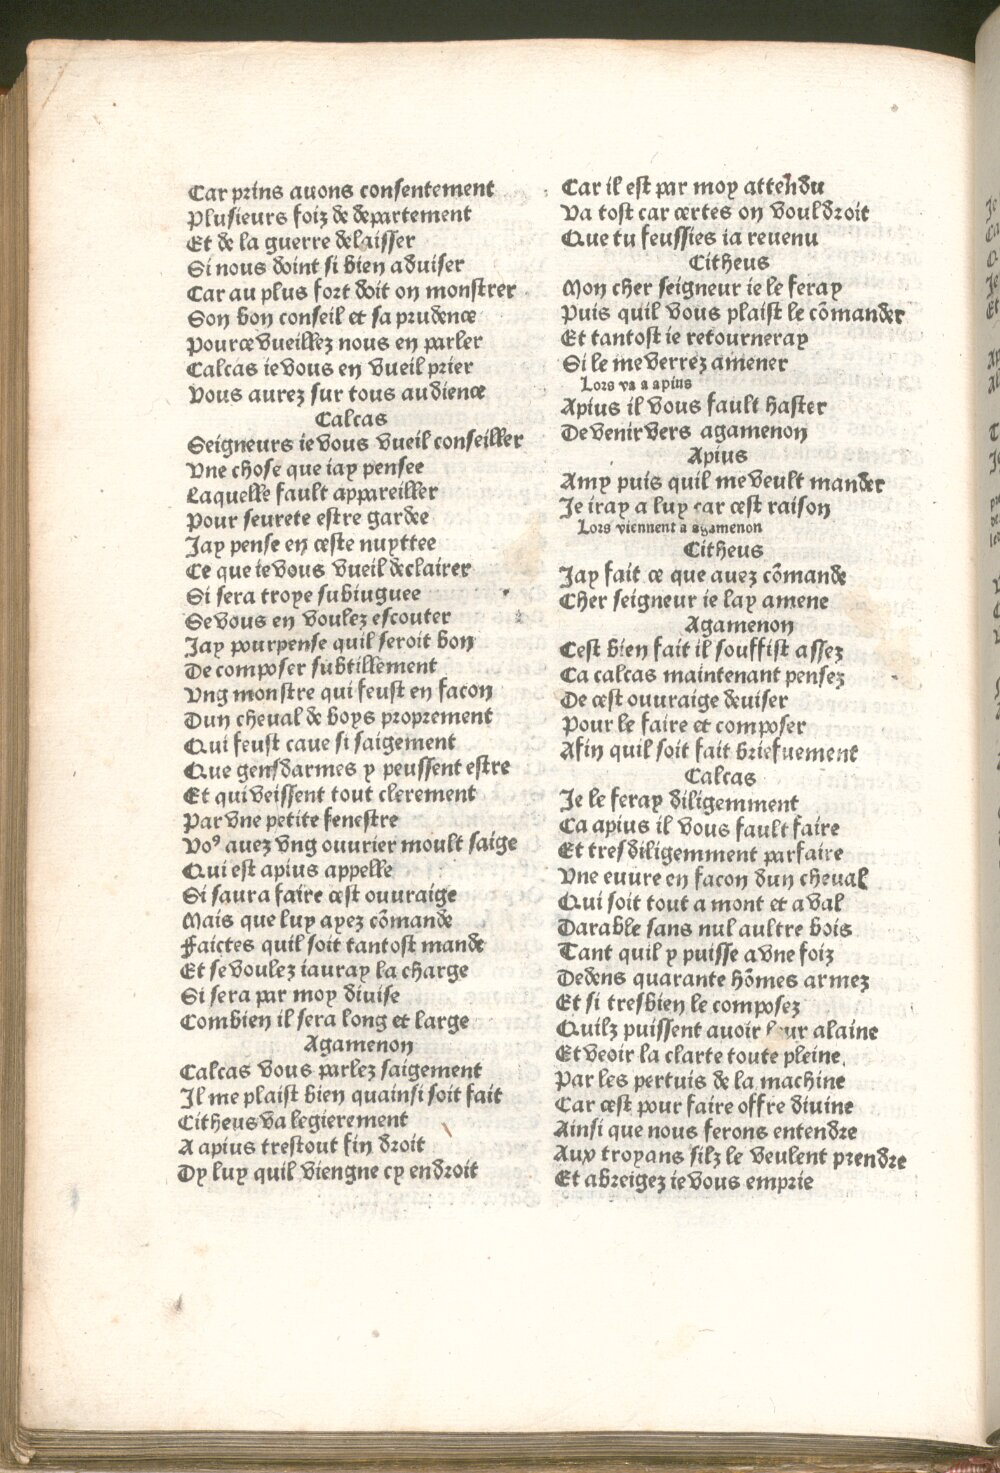 Car prins auons consentement
Plusieurs foiz de departement
Et de la guerre delaisser
Si nous doint si bien aduiser
Car au plus fort doit on monstrer
Son bon conseil et sa prudence
Pource vueillez nous en parler
Calcas ie vous en vueil prier
Vous aurez sur tous audience
Calcas
Seigneurs ie vous vueil conseiller
Vne chose que iay pensee
Laquelle fault appareiller
Pour seurete estre gardee
Jay pense en ceste nuyttee
Ce que ie vous vueil declairer
Si sera troye subiuguee
Se vous en voulez escouter
Jay pourpense quil seroit bon
De composer subtillement
Vng monstre qui feust en facon
Dun cheval de boys proprement
Qui feust caue si saigement
Que gensdarmes y peussent estre
Et qui veissent tout clerement
Par vne petite fenestre
Voꝰ auez vng ouurier moult saige
Qui est apius appelle
Si saura faire cest ouuraige
Mais que luy ayez cōmande
Faictes quil soit tantost mande
Et se voulez iauray la charge
Si sera par moy diuise
Combien il sera long et large
Agamenon
Calcas vous parlez saigement
Il me plaist bien quainsi soit fait
Citheus va legierement
A apius trestout fin droit
Dy luy quil viengne cy endroit
Car il est par moy attendu
Va tost car certes on vouldroit
Que tu feussies ia reuenu
Citheus
Mon cher seigneur ie le feray
Puis quil vous plaist le cōmander
Et tantost ie retourneray
Si le me verrez amener
Lors va a apius
Apius il vous fault haster
De venir vers agamenon
Apius
Amy puis quil me veult mander
Je iray a luy car cest raison
Lors viennent a agamenon
Citheus
Jay fait ce que auez cōmande
Cher seigneur ie lay amene
Agamenon
Cest bien fait il souffist assez
Ca calcas maintenant pensez
De cest ouuraige deuiser
Pour le faire et composer
Afin quil soit fait briefuement
Calcas
Je le feray diligemment
Ca apius il vous fault faire
Et tresdiligemment parfaire
Vne euure en facon dun cheual
Qui soit tout a mont et a val
Darable sans nul aultre bois
Tant quil y puisse a vne foiz
Dedens quarante hōmes armez
Et si tresbien le composez
Quilz puissent auoir leur alaine
Et veoir la clarte toute pleine
Par les pertuis de la machine
Car cest pour faire offre diuine
Ainsi que nous ferons entendre
Aux troyans silz le veulent prendre
Et abreigez ie vous emprie